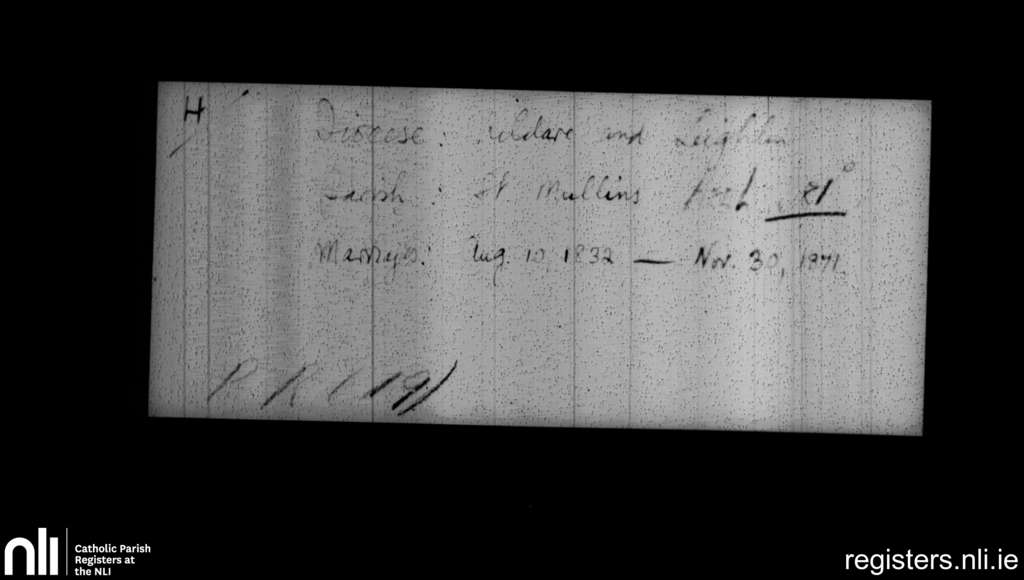 H
Diocese: Kildare and Leighlin
Parish: St Mullins
Marriages: Aug. 10, 1832 — Nov. 30, 1871.
P.
nli
Catholic Parish
Registers at
the NLI
registers.nli.ie